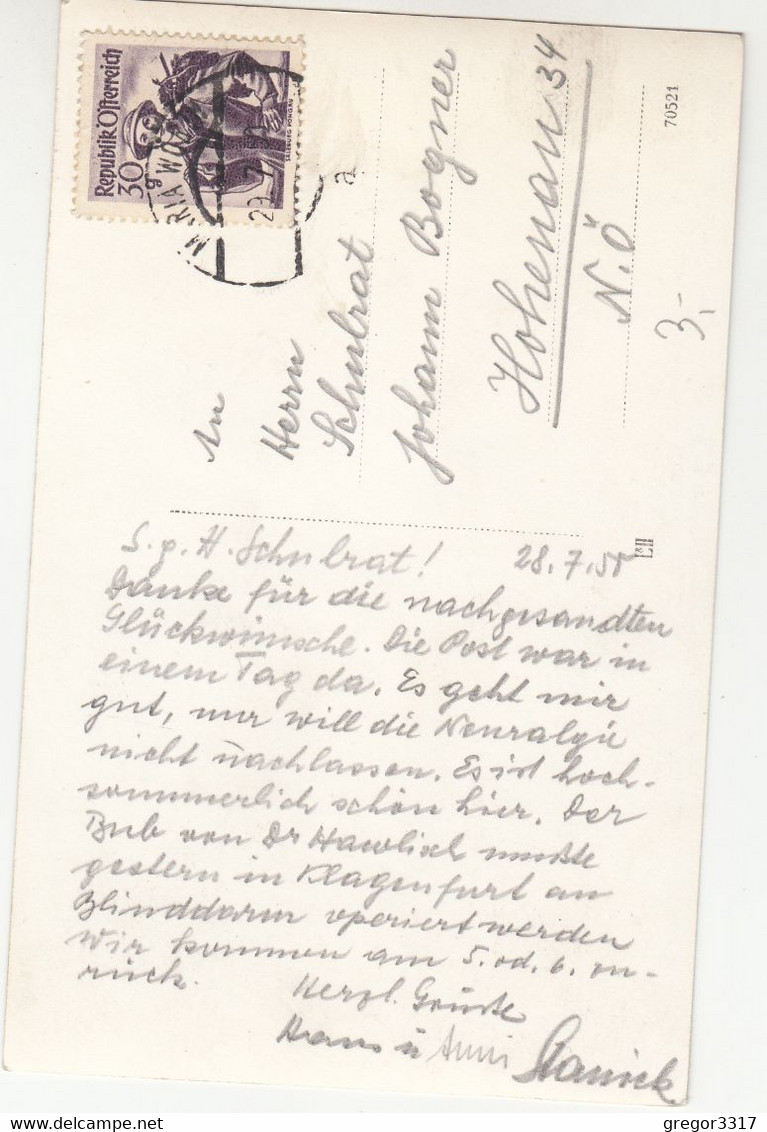 Republik Österreich
30 g
SALZBURG PONGAU
MARIA WÖ
a
An
Herrn
Schulrat
Johann Bogner
Hohenau 34
N.Ö
3,-
70521
S. g. H. Schulrat! 28.7.58
Danke für die nachgesandten
Glückwünsche. Die Post war in
einem Tag da. Es geht mir
gut, nur will die Neuralgie
nicht nachlassen. Es ist hoch-
sommerlich schön hier. Der
Bub von Dr Hawlisch mußte
gestern in Klagenfurt am
Blinddarm operiert werden
Wir kommen am 5. od. 6. zu-
rück. Herzl. Grüße
Hans u Anni
gregor3317